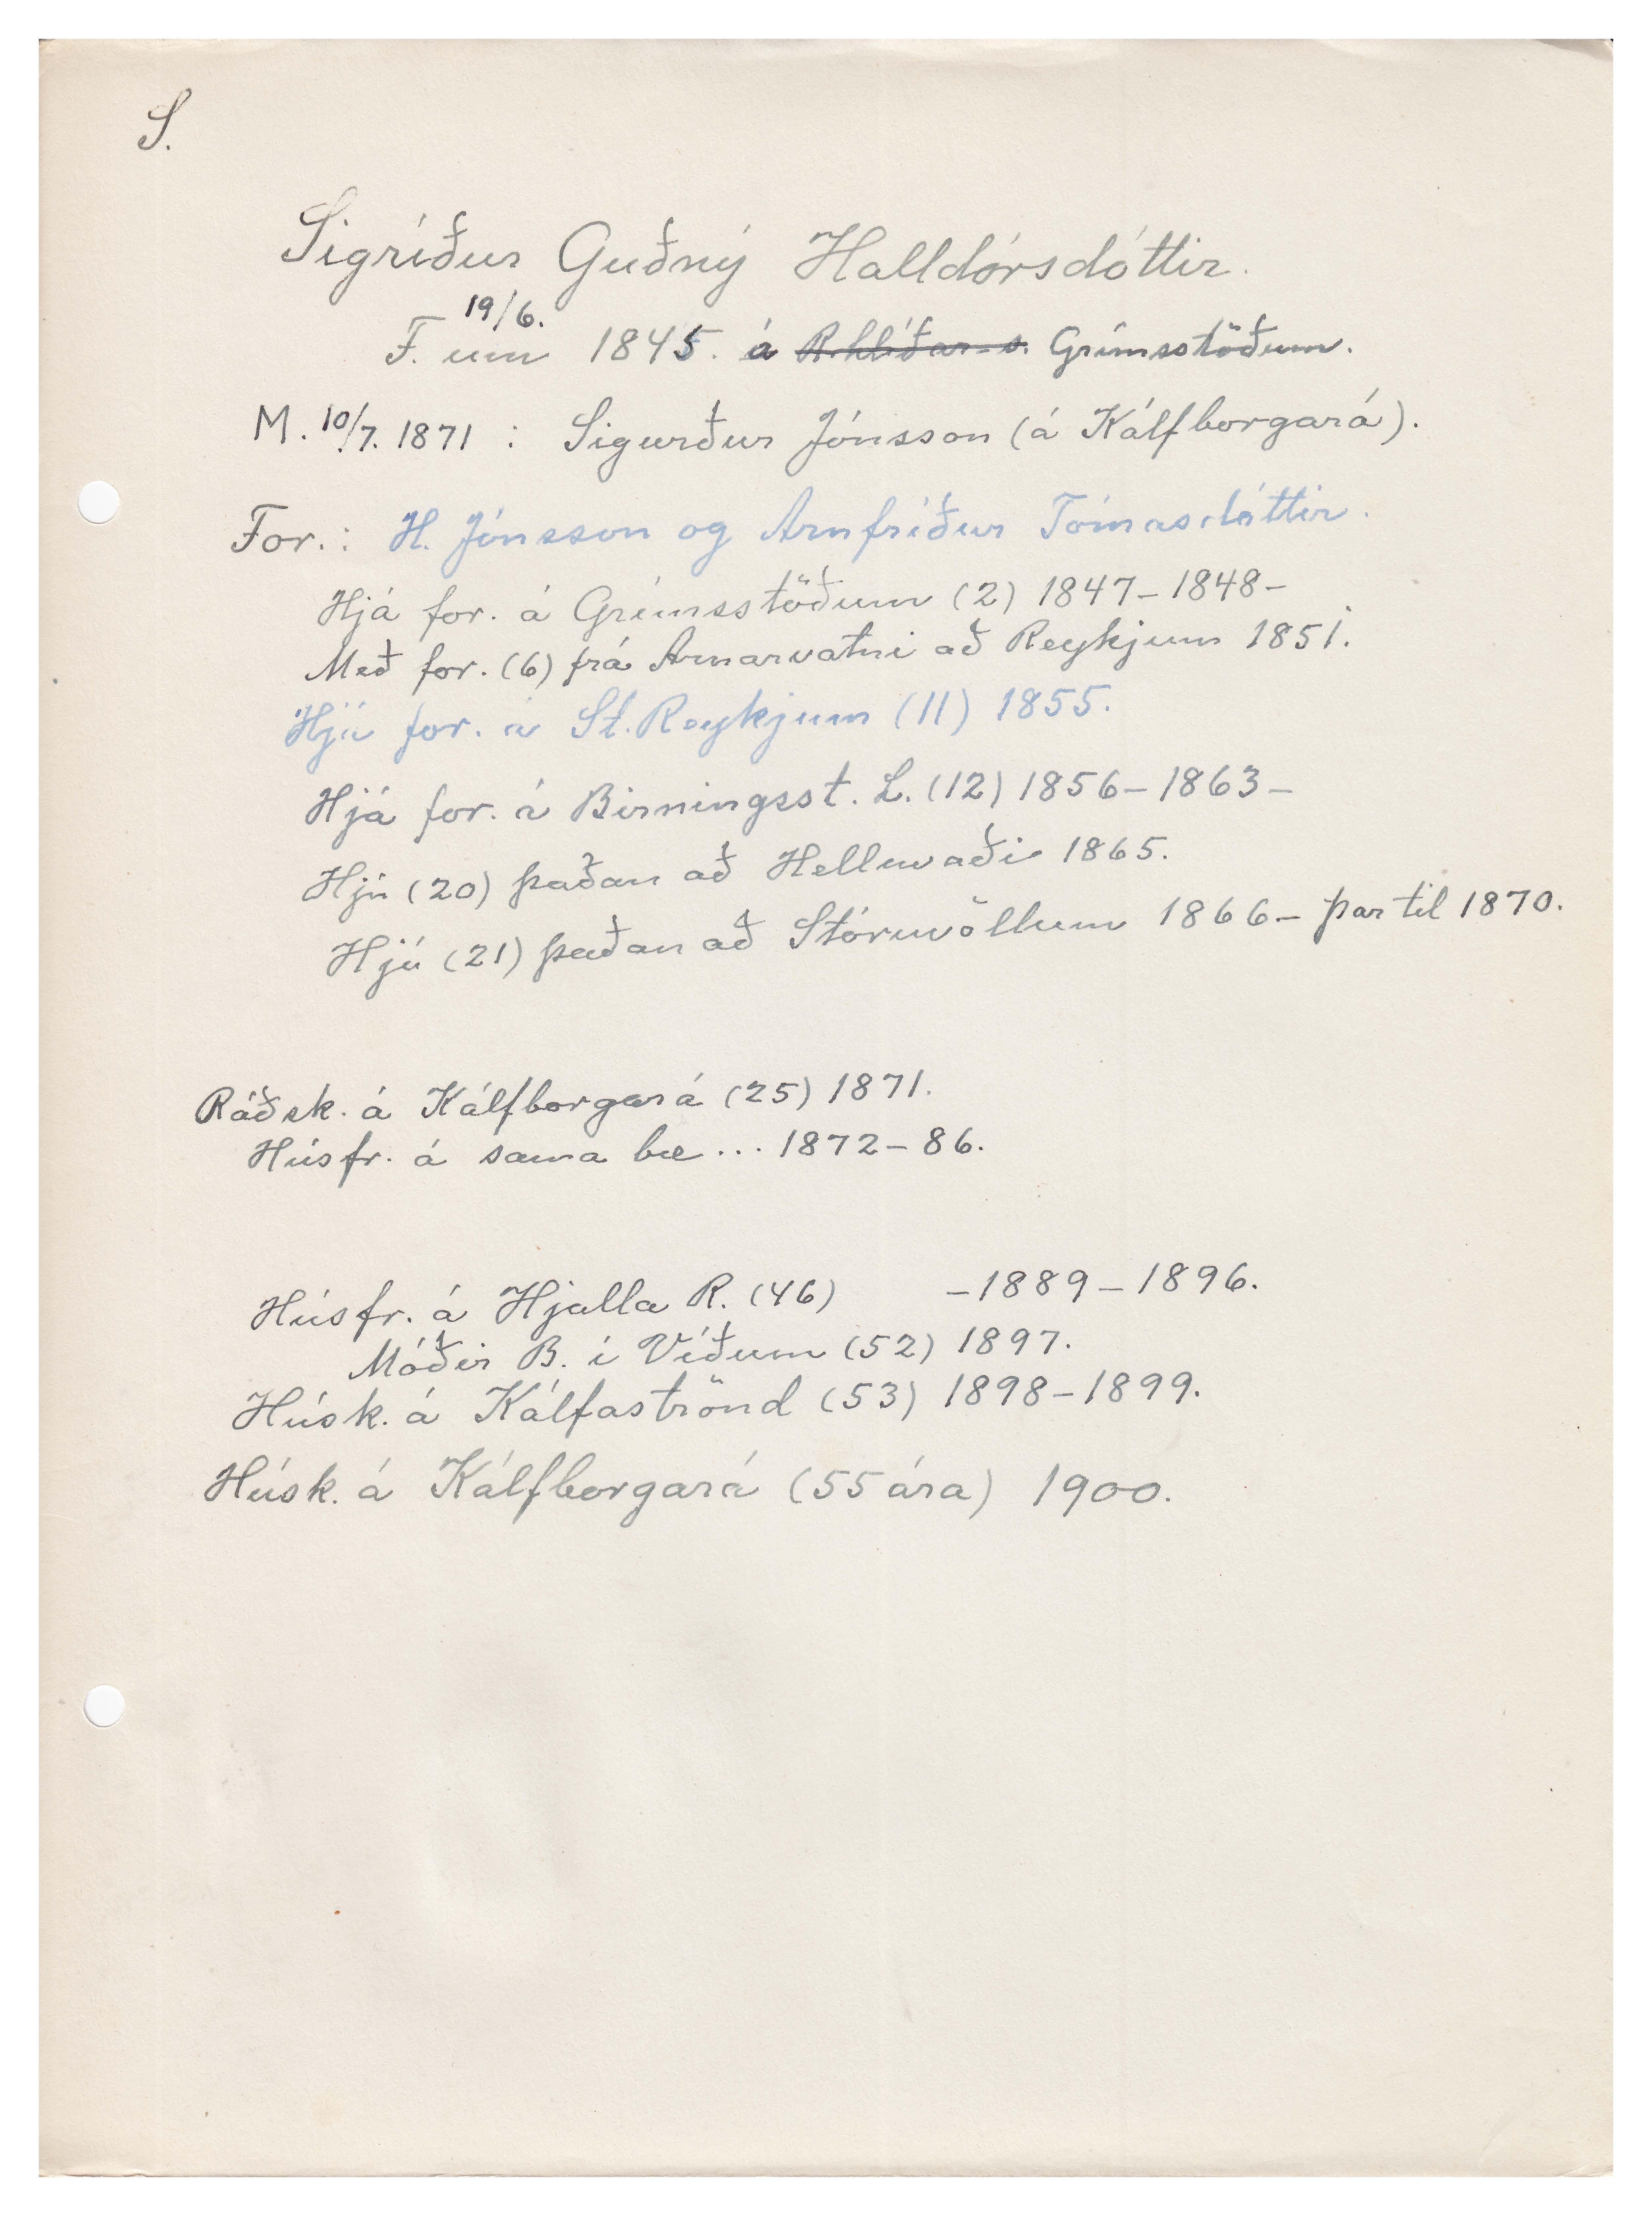 S.
Sigríður Guðný Halldórsdóttir.
19/6.
F. um 1845. á R.hlíðar-s. Grímsstöðum.
M. 10/7. 1871 : Sigurður Jónsson (á Kálfborgará).
For.: H. Jónsson og Arnfríður Tómasdóttir.
Hjá for. á Grímsstöðum (2) 1847-1848-
Með for. (6) frá Arnarvatni að Reykjum 1851.
Hjá for. á St. Reykjum (11) 1855.
Hjá for. á Birningsst. L. (12) 1856-1863-
Hjú (20) þaðan að Helluvaði 1865.
Hjú (21) þaðan að Stóruvöllum 1866- þar til 1870.
Ráðsk. á Kálfborgará (25) 1871.
Húsfr. á sama bæ ... 1872-86.
Húsfr. á Hjalla R. (46) -1889-1896.
Móðir B. í Víðum (52) 1897.
Húsk. á Kálfaströnd (53) 1898-1899.
Húsk. á Kálfborgará (55 ára) 1900.